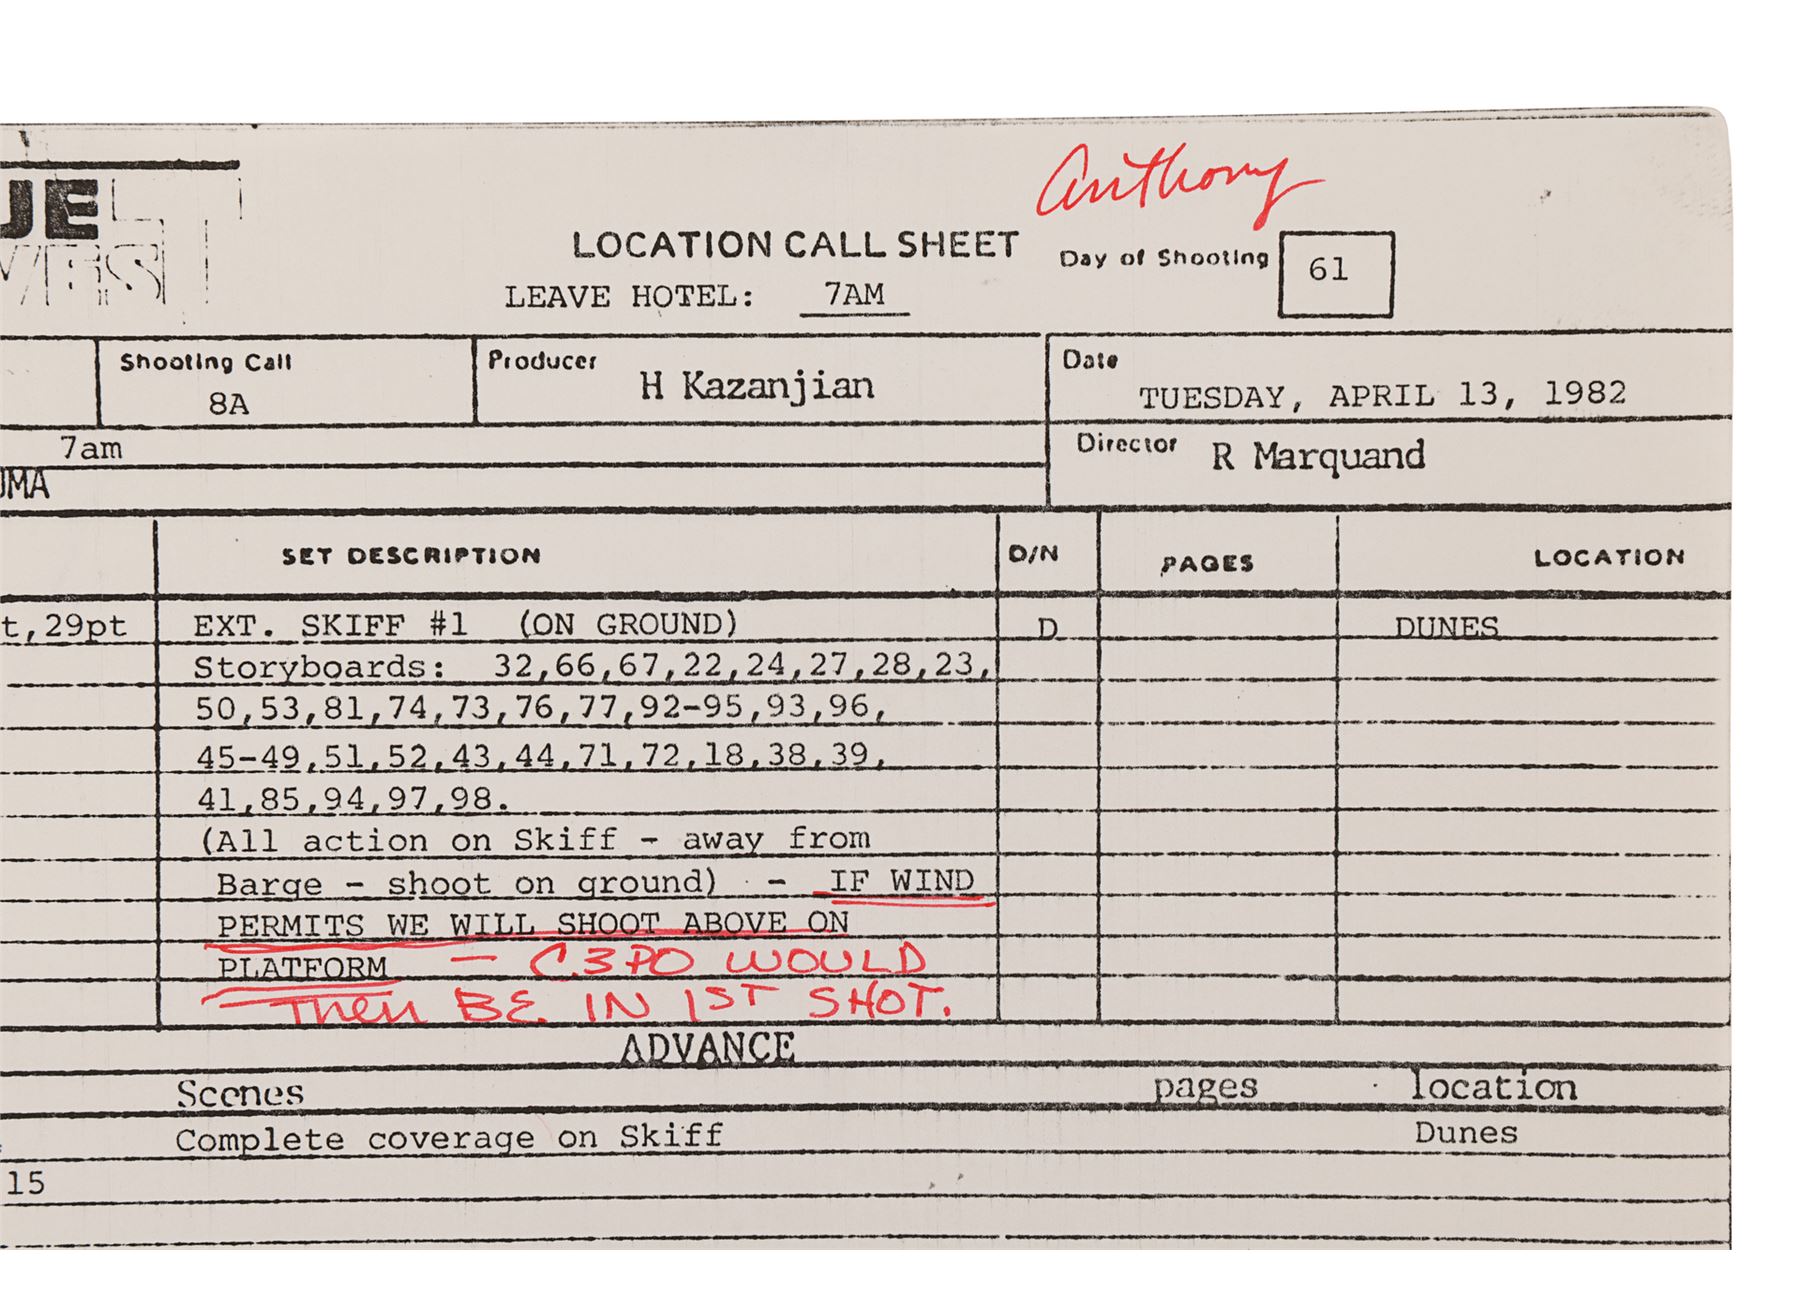 Anthony
UE
LOCATION CALL SHEET
Day of Shooting 61
LEAVE HOTEL: 7AM
Shooting Call
8A
Producer
H Kazanjian
Date
TUESDAY, APRIL 13, 1982
7am
Director R Marquand
UMA
SET DESCRIPTION D/N PAGES LOCATION
t,29pt EXT. SKIFF #1 (ON GROUND) D DUNES
Storyboards: 32,66,67,22,24,27,28,23,
50,53,81,74,73,76,77,92-95,93,96,
45-49,51,52,43,44,71,72,18,38,39,
41,85,94,97,98.
(All action on Skiff - away from
Barge - shoot on ground) - IF WIND
PERMITS WE WILL SHOOT ABOVE ON
PLATFORM — C.3PO WOULD
Then BE IN 1ST SHOT.
ADVANCE
Scenes pages location
Complete coverage on Skiff Dunes
15